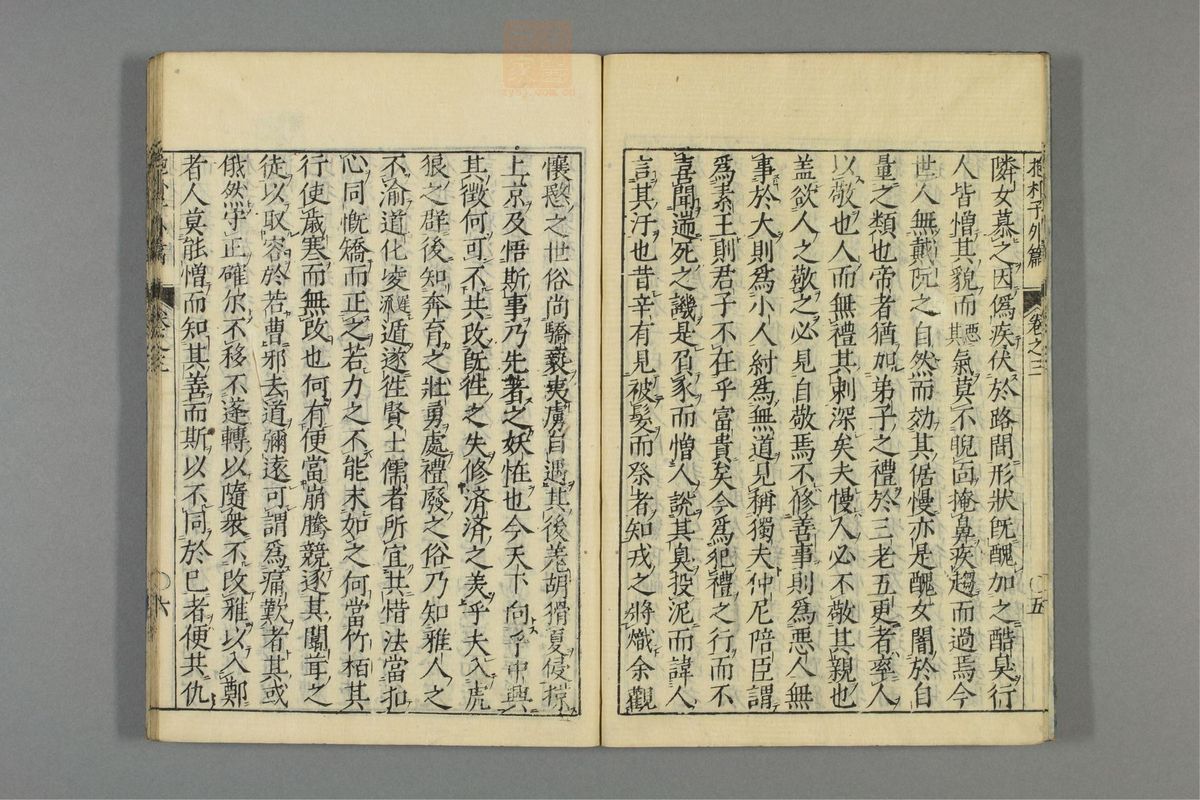 抱朴子外篇 卷之三 〇五
隣女慕之因僞疾伏於路間形狀既醜加之酷臭行
人皆憎其貌而惡其氣莫不睨面掩鼻疾趨而過焉今
世人無戴阮之自然而効其倨慢亦是醜女闇於自
量之類也帝者猶如弟子之禮於三老五更者率人
以敬也人而無禮其刺深矣夫慢人必不敬其親也
盖欲人之敬之必見自敬焉不修善事則爲惡人無
事於大則爲小人紂爲無道見稱獨夫仲尼陪臣謂
爲素王則君子不在乎富貴矣今爲犯禮之行而不
喜聞遄死之譏是負豕而憎人說其臭投泥而諱人
言其汙也昔辛有見被髮而祭者知戎之將熾余觀
懷愍之世俗尚驕䙝夷虜自遇其後羗胡猾夏侵掠
上京及悟斯事乃先著之妖恠也今天下向乎中興
其徵何可不共改既徃之失修済済之美乎夫入虎
狼之群後知奔育之壯勇處禮廢之俗乃知雅人之
不渝道化凌遲流遁遂徃賢士儒者所宜共惜法當扣
心同慨矯而正之若力之不能末如之何當竹栢其
行使歳寒而無改也何有便當崩騰競逐其闒茸之
徒以取容於若曹邪去道彌遠可謂爲痛歎者其或
俄然守正確尔不移不蓬轉以隨衆不改雅以入鄭
者人莫能憎而知其善而斯以不同於已者便共仇
〇六
zysj.com.cn